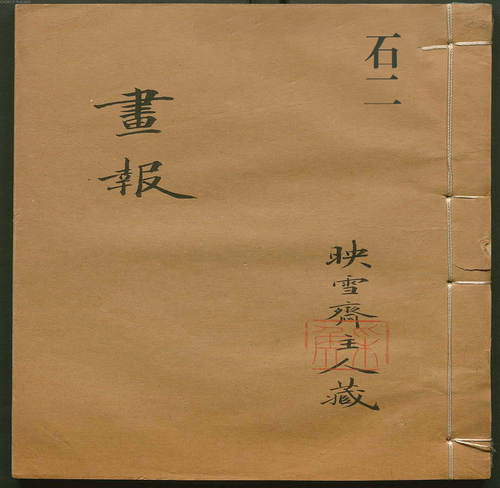 石二
畫報
映雪齋主人藏